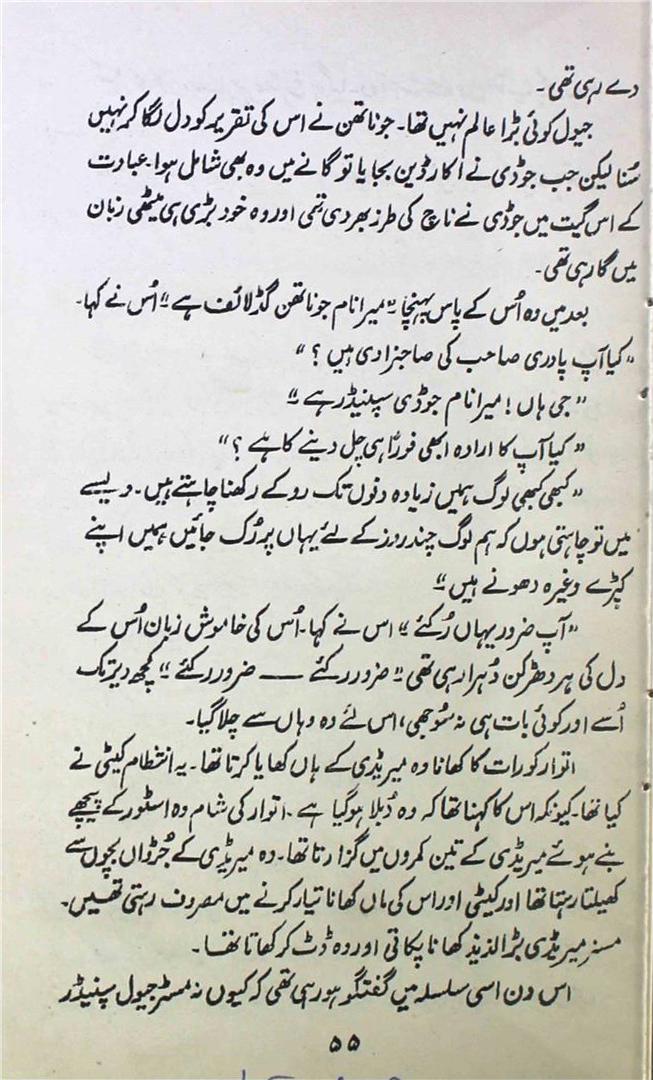 دے رہی تھی۔
جیول کوئی بڑا عالم نہیں تھا۔ جوناتھن نے اس کی تقریر کو دل لگا کر نہیں
سُنا لیکن جب جوڈی نے اکارڈین بجایا تو گانے میں وہ بھی شامل ہوا۔ عبادت
کے اس گیت میں جوڈی نے ناچ کی طرز بھر دی تھی اور وہ خود بڑی ہی میٹھی زبان
میں گا رہی تھی۔
بعد میں وہ اُس کے پاس پہنچا "میرا نام جوناتھن گڈلائف ہے" اُس نے کہا۔
"کیا آپ پادری صاحب کی صاحبزادی ہیں؟"
"جی ہاں! میرا نام جوڈی سپنیڈر ہے"
"کیا آپ کا ارادہ ابھی فوراً ہی چل دینے کا ہے؟"
"کبھی کبھی لوگ ہمیں زیادہ دنوں تک روکے رکھنا چاہتے ہیں۔ ویسے
میں تو چاہتی ہوں کہ ہم لوگ چند روز کے لئے یہاں پر رُک جائیں ہمیں اپنے
کپڑے وغیرہ دھونے ہیں"
"آپ ضرور یہاں رُکئے" اس نے کہا۔ اُس کی خاموش زبان اُس کے
دل کی ہر دھڑکن دُہرا رہی تھی "ضرور رکئے —— ضرور رکئے" کچھ دیر تک
اُسے اور کوئی بات ہی نہ سُوجھی، اس لئے وہ وہاں سے چلا گیا۔
اتوار کو رات کا کھانا وہ میریڈی کے ہاں کھایا کرتا تھا۔ یہ انتظام کیٹی نے
کیا تھا۔ کیونکہ اس کا کہنا تھا کہ وہ دُبلا ہو گیا ہے۔ اتوار کی شام وہ اسٹور کے پیچھے
بنے ہوئے میریڈی کے تین کمروں میں گزارتا تھا۔ وہ میریڈی کے جُڑواں بچوں سے
کھیلتا رہتا تھا اور کیٹی اور اس کی ماں کھانا تیار کرنے میں مصروف رہتی تھیں۔
مسز میریڈی بڑا لذیذ کھانا پکاتی اور وہ ڈٹ کر کھاتا تھا۔
اس دن اسی سلسلہ میں گفتگو ہو رہی تھی کہ کیوں نہ مسٹر جیول سپنیڈر
۵۵